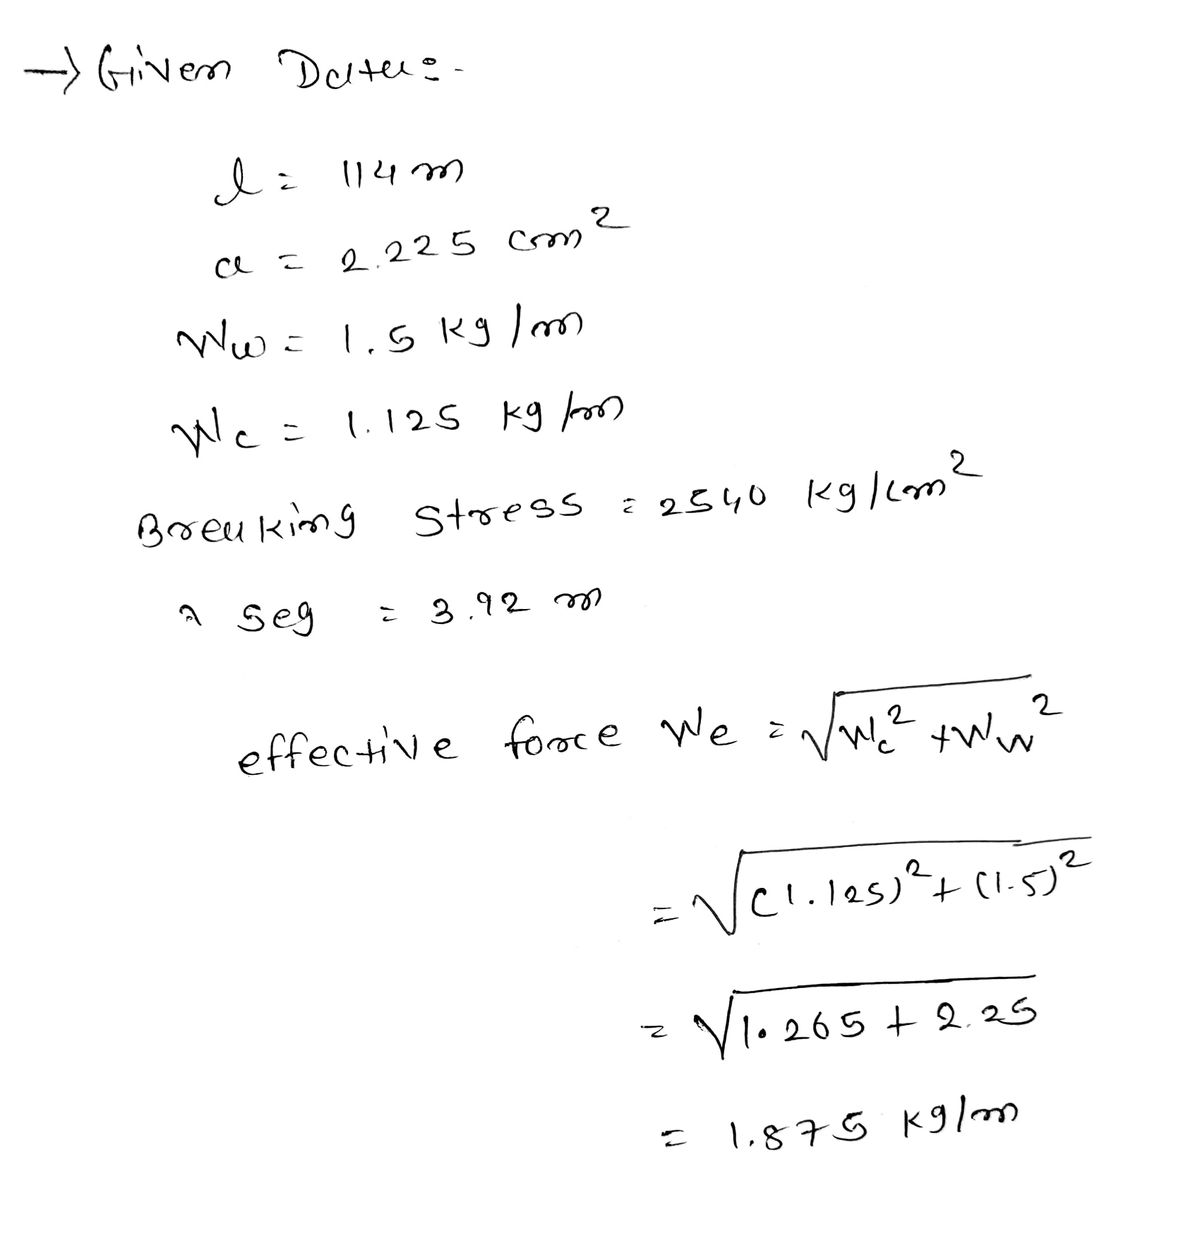 → Given Data:-
l = 114 m
a = 2.225 cm²
Ww = 1.5 kg/m
Wc = 1.125 kg/m
Breaking stress = 2540 kg/cm²
sag = 3.92 m
effective force We = √(Wc² + Ww²)
= √((1.125)² + (1.5)²)
= √(1.265 + 2.25)
= 1.875 kg/m